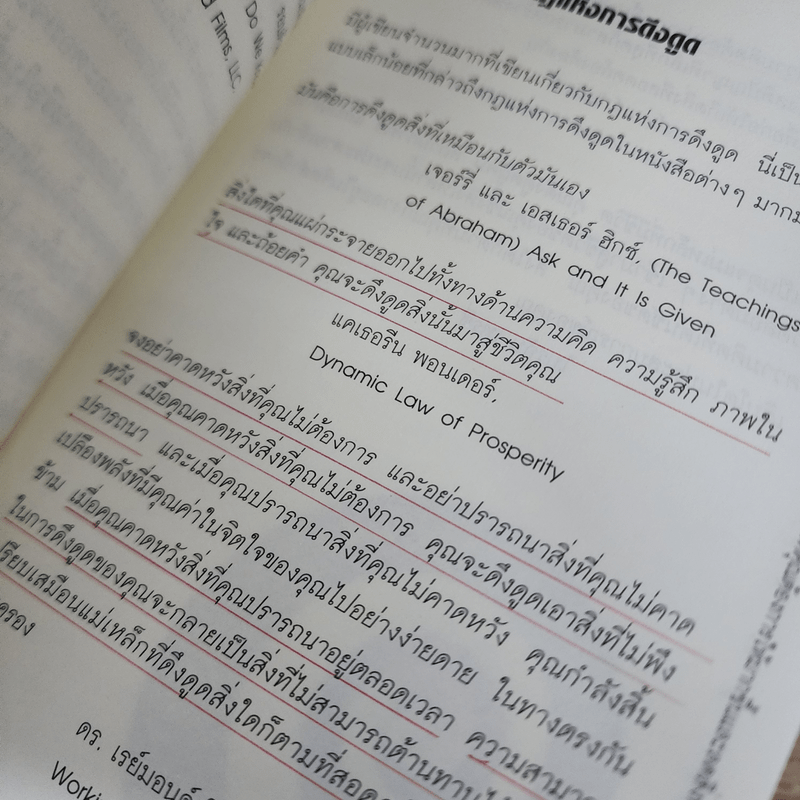 Do We
Films, LLC.
แห่งการดึงดูด
มีผู้เขียนจำนวนมากที่เขียนเกี่ยวกับกฎแห่งการดึงดูด นี่เป็น
แบบเล็กน้อยที่กล่าวถึงกฎแห่งการดึงดูดในหนังสือต่างๆ
มันคือการดึงดูดสิ่งที่เหมือนกับตัวมันเอง
เจอร์รี่ และ เอสเธอร์ ฮิกซ์, (The Teachings
of Abraham) Ask and It Is Given
สิ่งใดที่คุณแผ่กระจายออกไปทั้งทางด้านความคิด ความรู้สึก ภาพใน
ใจ และถ้อยคำ คุณจะดึงดูดสิ่งนั้นมาสู่ชีวิตคุณ
แคเธอรีน พอนเดอร์,
Dynamic Law of Prosperity
จงอย่าคาดหวังสิ่งที่คุณไม่ต้องการ และอย่าปรารถนาสิ่งที่คุณไม่คาด
หวัง เมื่อคุณคาดหวังสิ่งที่คุณไม่ต้องการ คุณจะดึงดูดเอาสิ่งที่ไม่พึง
ปรารถนา และเมื่อคุณปรารถนาสิ่งที่คุณไม่คาดหวัง คุณกำลังสิ้น
เปลืองพลังที่มีคุณค่าในจิตใจของคุณไปอย่างง่ายดาย ในทางตรงกัน
ข้าม เมื่อคุณคาดหวังสิ่งที่คุณปรารถนาอยู่ตลอดเวลา ความสามาร
ในการดึงดูดของคุณจะกลายเป็นสิ่งที่ไม่สามารถต้านทานได้
รียบเสมือนแม่เหล็กที่ดึงดูดสิ่งใดก็ตามที่สอด
ครอง
ดร. เรย์มอนด์